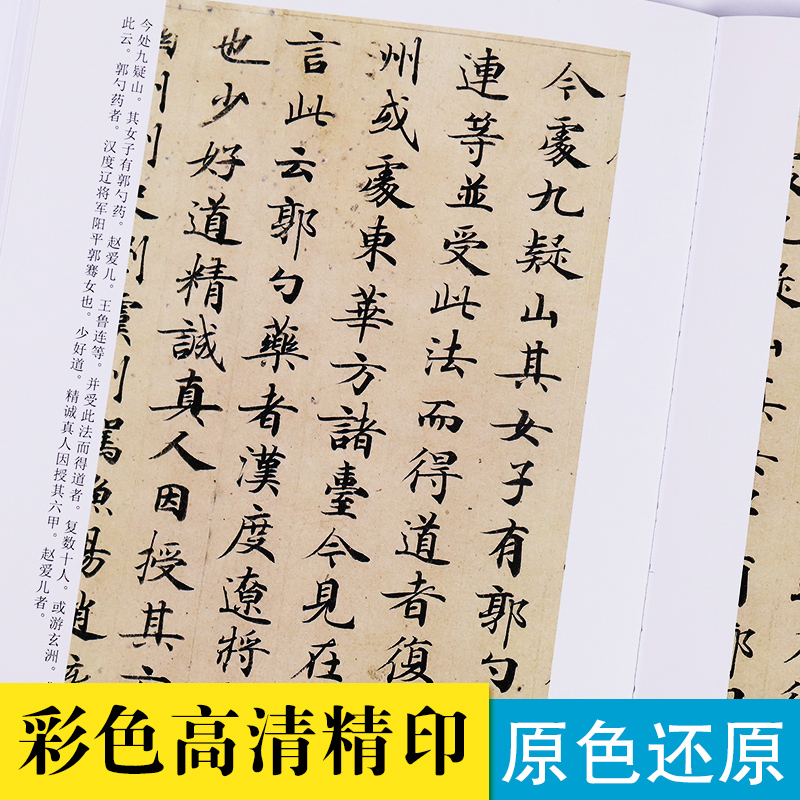 今處九疑山其女子有郭勺
連等並受此法而得道者復
州或處東華方諸臺今見在
言此云郭勺藥者漢度遼將
也少好道精誠真人因授其
幽州刺史劉虞別駕漁陽趙
今处九疑山。其女子有郭勺药。赵爱儿。王鲁连等。并受此法而得道者。复数十人。或游玄洲。
此云。郭勺药者。汉度辽将军阳平郭骞女也。少好道。精诚真人因授其六甲。赵爱儿者。
彩色高清精印
原色还原